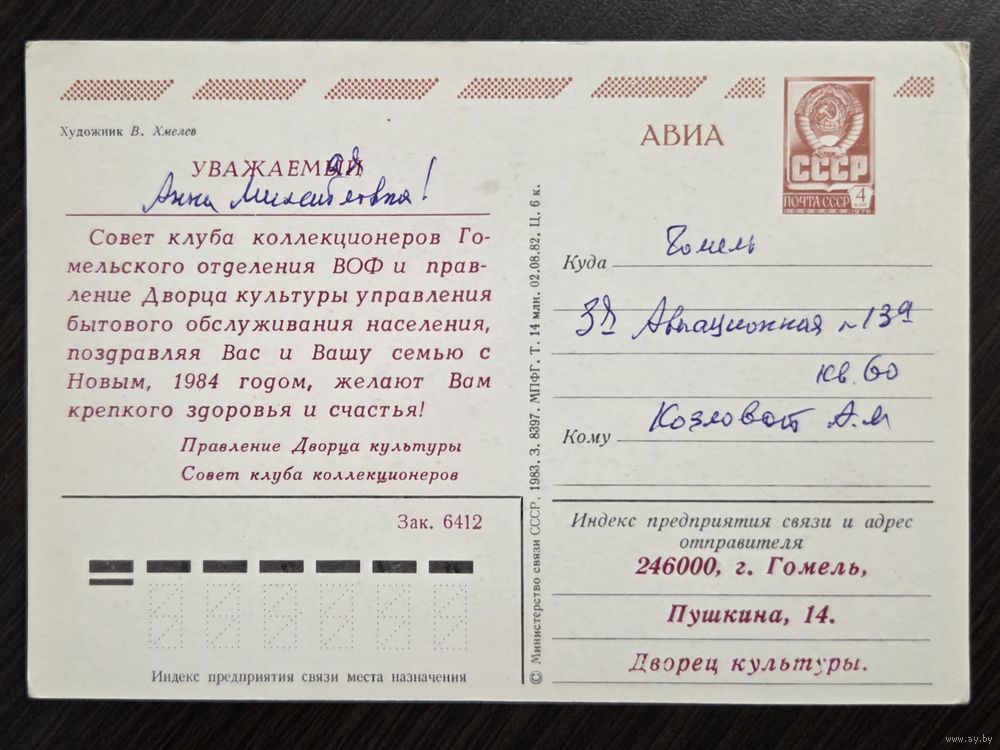 Художник В. Хмелев
УВАЖАЕМЫЙ ая
Анна Михайловна!
Совет клуба коллекционеров Го-
мельского отделения ВОФ и прав-
ление Дворца культуры управления
бытового обслуживания населения,
поздравляя Вас и Вашу семью с
Новым, 1984 годом, желают Вам
крепкого здоровья и счастья!
Правление Дворца культуры
Совет клуба коллекционеров
Зак. 6412
Индекс предприятия связи места назначения
© Министерство связи СССР. 1983. З. 8397. МПФГ. Т. 14 млн. 02.08.82. Ц. 6 к.
АВИА
СССР
ПОЧТА СССР 4 КОП
1978
Куда Гомель
Авиационная 13а
кв. 60
Кому Козловой А.М
Индекс предприятия связи и адрес
отправителя
246000, г. Гомель,
Пушкина, 14.
Дворец культуры.
www.ay.by